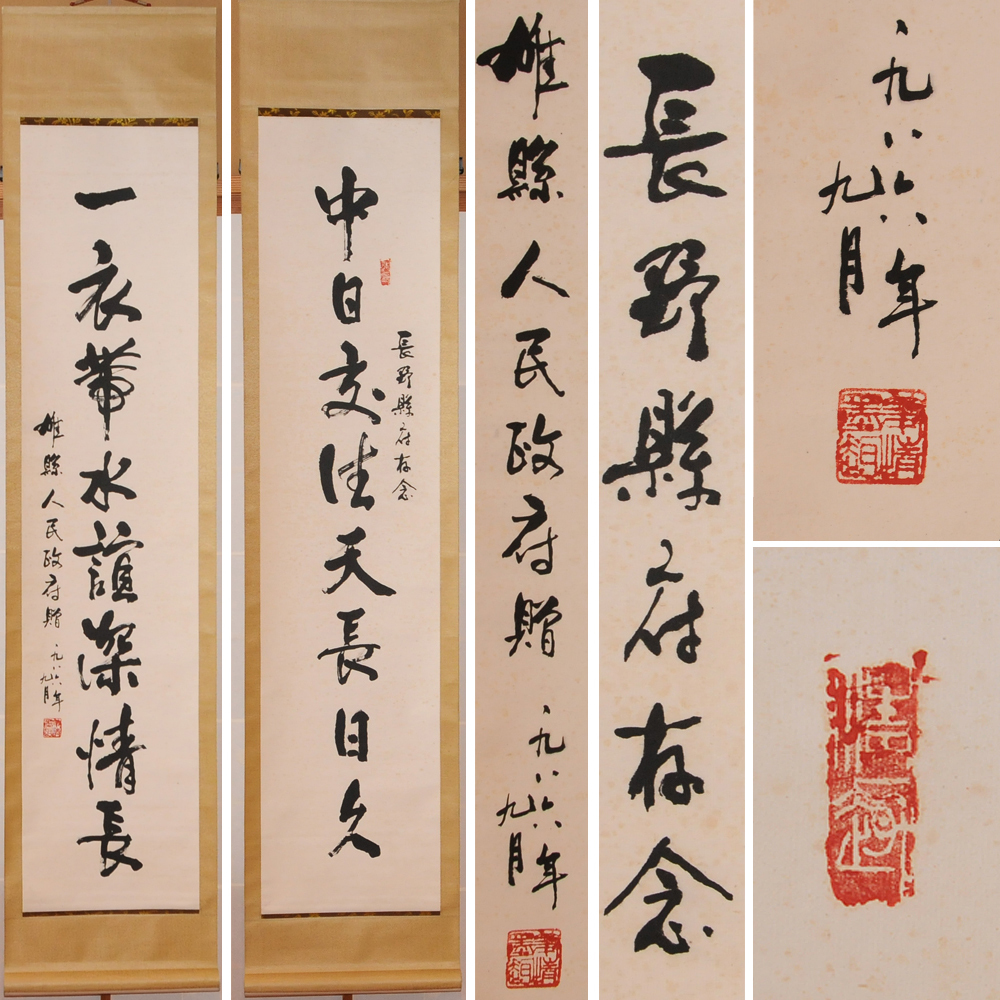 一衣帶水誼深情長
雄縣人民政府贈
一九八六年
九月
長野縣府存念
中日交往天長日久
雄縣人民政府贈
一九八六年
九月
長野縣府存念
一九八六年
九月